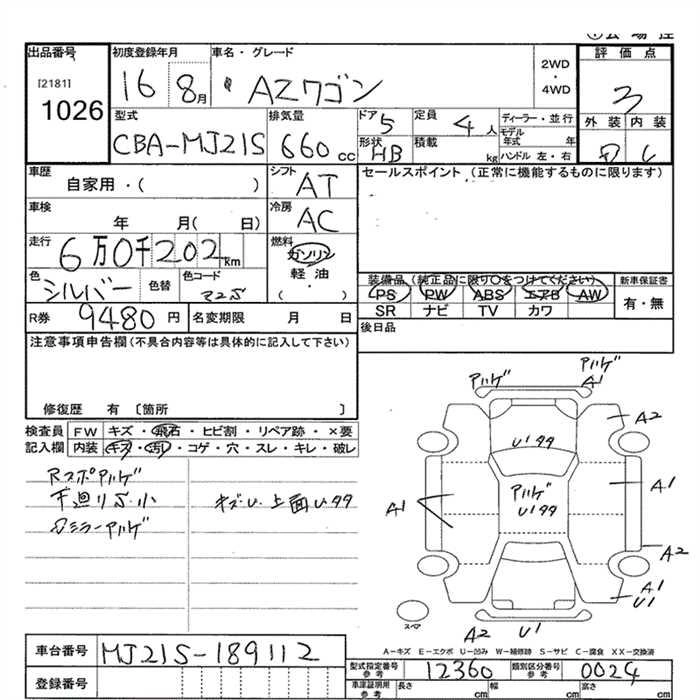 出品番号
[2181]
1026
初度登録年月
16 8月
車名・グレード
AZワゴン
2WD
・
4WD
評価点
3
型式
CBA-MJ21S
排気量
660 cc
ドア 5
形状 HB
定員 4 人
積載 kg
ディーラー・並行
モデル年式 年
ハンドル 左・右
外装 内装
車歴
自家用・( )
シフト
AT
セールスポイント(正常に機能するものに限ります)
車検
年 月( 日)
冷房
AC
走行
6万0千202km
燃料
ガソリン
軽油
( ・ )
色
シルバー
色替
色コード
装備品(純正品に限り○をつけてください)
新車保証書
PS PW ABS エアB AW
有・無
SR ナビ TV カワ
R券 9480 円
名変期限 月 日
後日品
注意事項申告欄(不具合内容等は具体的に記入して下さい)
修復歴 有 〔箇所 〕
検査員
記入欄
FW キズ・飛石・ヒビ割・リペア跡・×要
内装 キズ・汚レ・コゲ・穴・スレ・キレ・破レ
Rスポアルゲ
下廻りS小
ミラーアルゲ
キズU 上面U
アルゲ
アルゲ
A1
A2
アルゲ
A1
A1
A2
A1
U1
A2
U1
スペア
A-キズ E-エクボ U-凹み W-補修跡 S-サビ C-腐食 XX-交換済
車台番号 MJ21S-189112
登録番号
型式指定番号
参考
12360
類別区分番号
参考
0024
車庫証明用
参考
長さ cm 幅 cm 高さ cm